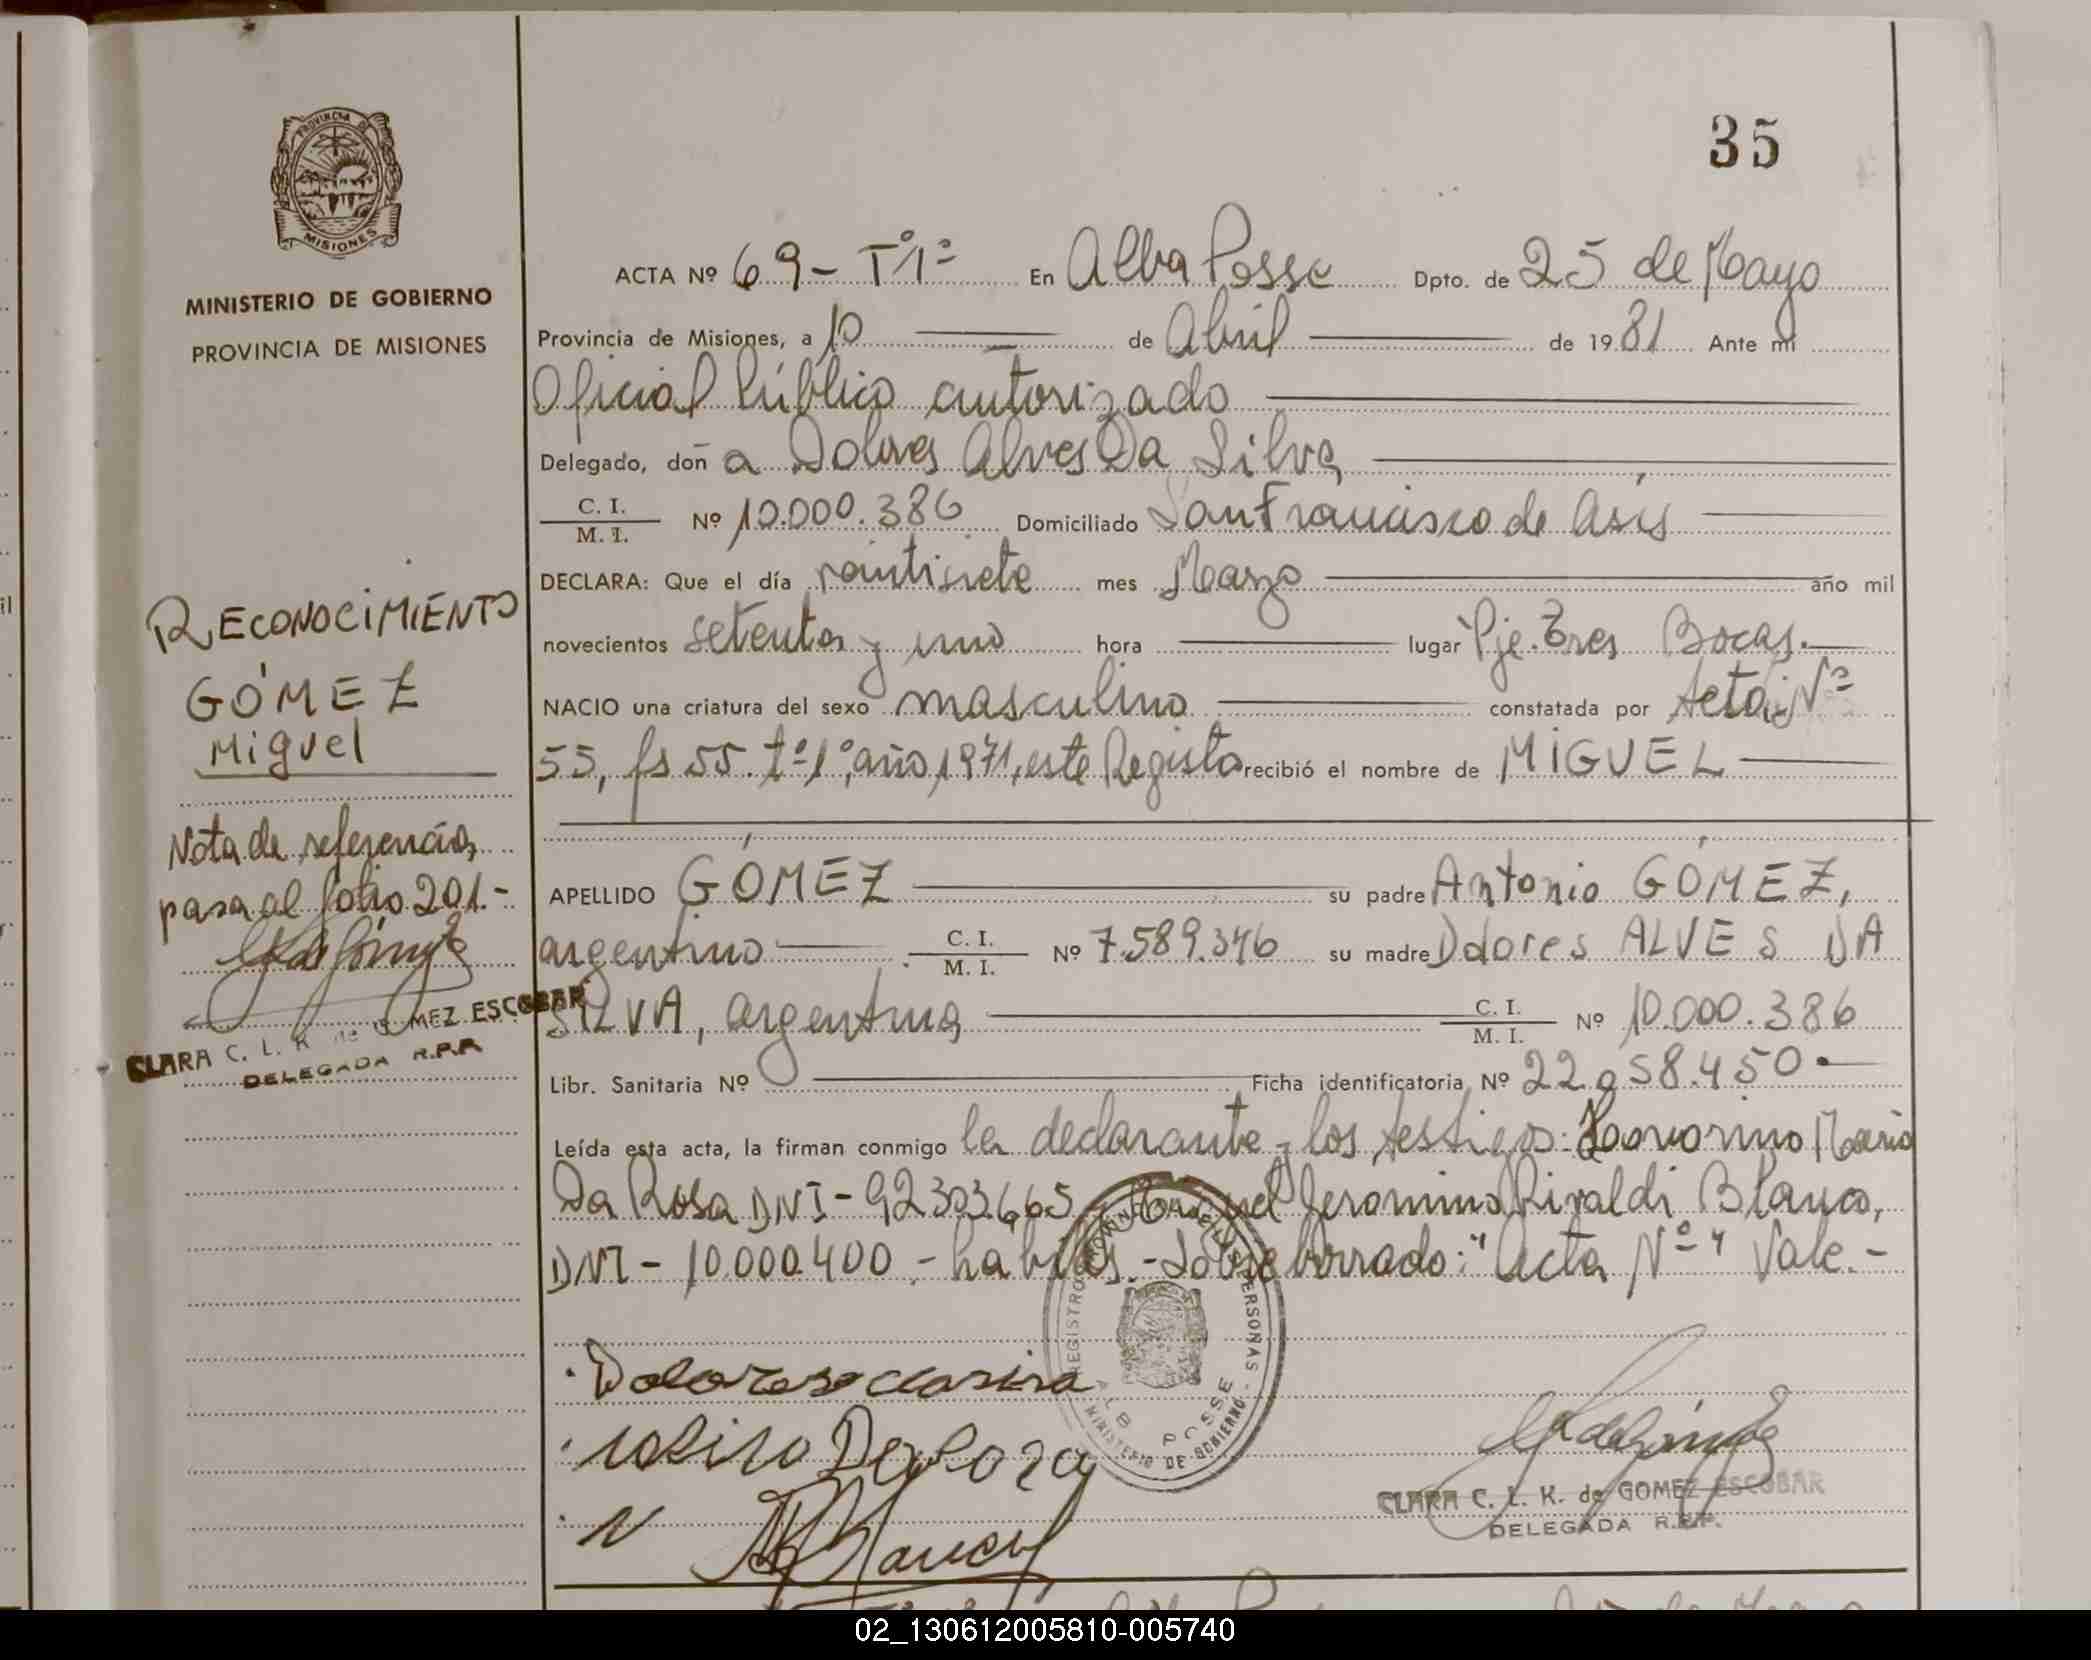 35
PROVINCIA DE
MISIONES
MINISTERIO DE GOBIERNO
PROVINCIA DE MISIONES
RECONOCIMIENTO
GÓMEZ
Miguel
Nota de referencia
pasa al folio 201.-
CLARA C. L. K de GOMEZ ESCOBAR
DELEGADA R.P.P.
ACTA Nº 69- Tº1º En Alba Posse Dpto. de 25 de Mayo
Provincia de Misiones, a 10 de Abril de 1981 Ante mi
Oficial Público autorizado
Delegado, doñ a Dolores Alves Da Silva
C. I. / M. I. Nº 10.000.386 Domiciliado San Francisco de Asís
DECLARA: Que el día veintisiete mes Marzo año mil
novecientos setenta y uno hora lugar Pje. Tres Bocas.
NACIO una criatura del sexo masculino constatada por Acta Nº
55, fs 55. tº1º, año 1971, este Registro recibió el nombre de MIGUEL
APELLIDO GÓMEZ su padre Antonio GÓMEZ,
argentino C. I. / M. I. Nº 7.589.346 su madre Dolores ALVES DA
SILVA, argentina C. I. / M. I. Nº 10.000.386
Libr. Sanitaria Nº Ficha identificatoria Nº 22.058.450
Leída esta acta, la firman conmigo la declarante y los testigos: Mario
Da Rosa DNI- 92303.665 y Miguel Jeronimo Rivaldi Blanco,
DNI- 10.000400.- habiles.- Sobre borrado: "Acta Nº" Vale.-
REGISTRO PROVINCIAL DE LAS PERSONAS
ALBA POSSE
MINISTERIO DE GOBIERNO
CLARA C. L. K. de GOMEZ ESCOBAR
DELEGADA R.P.P.
02_130612005810-005740